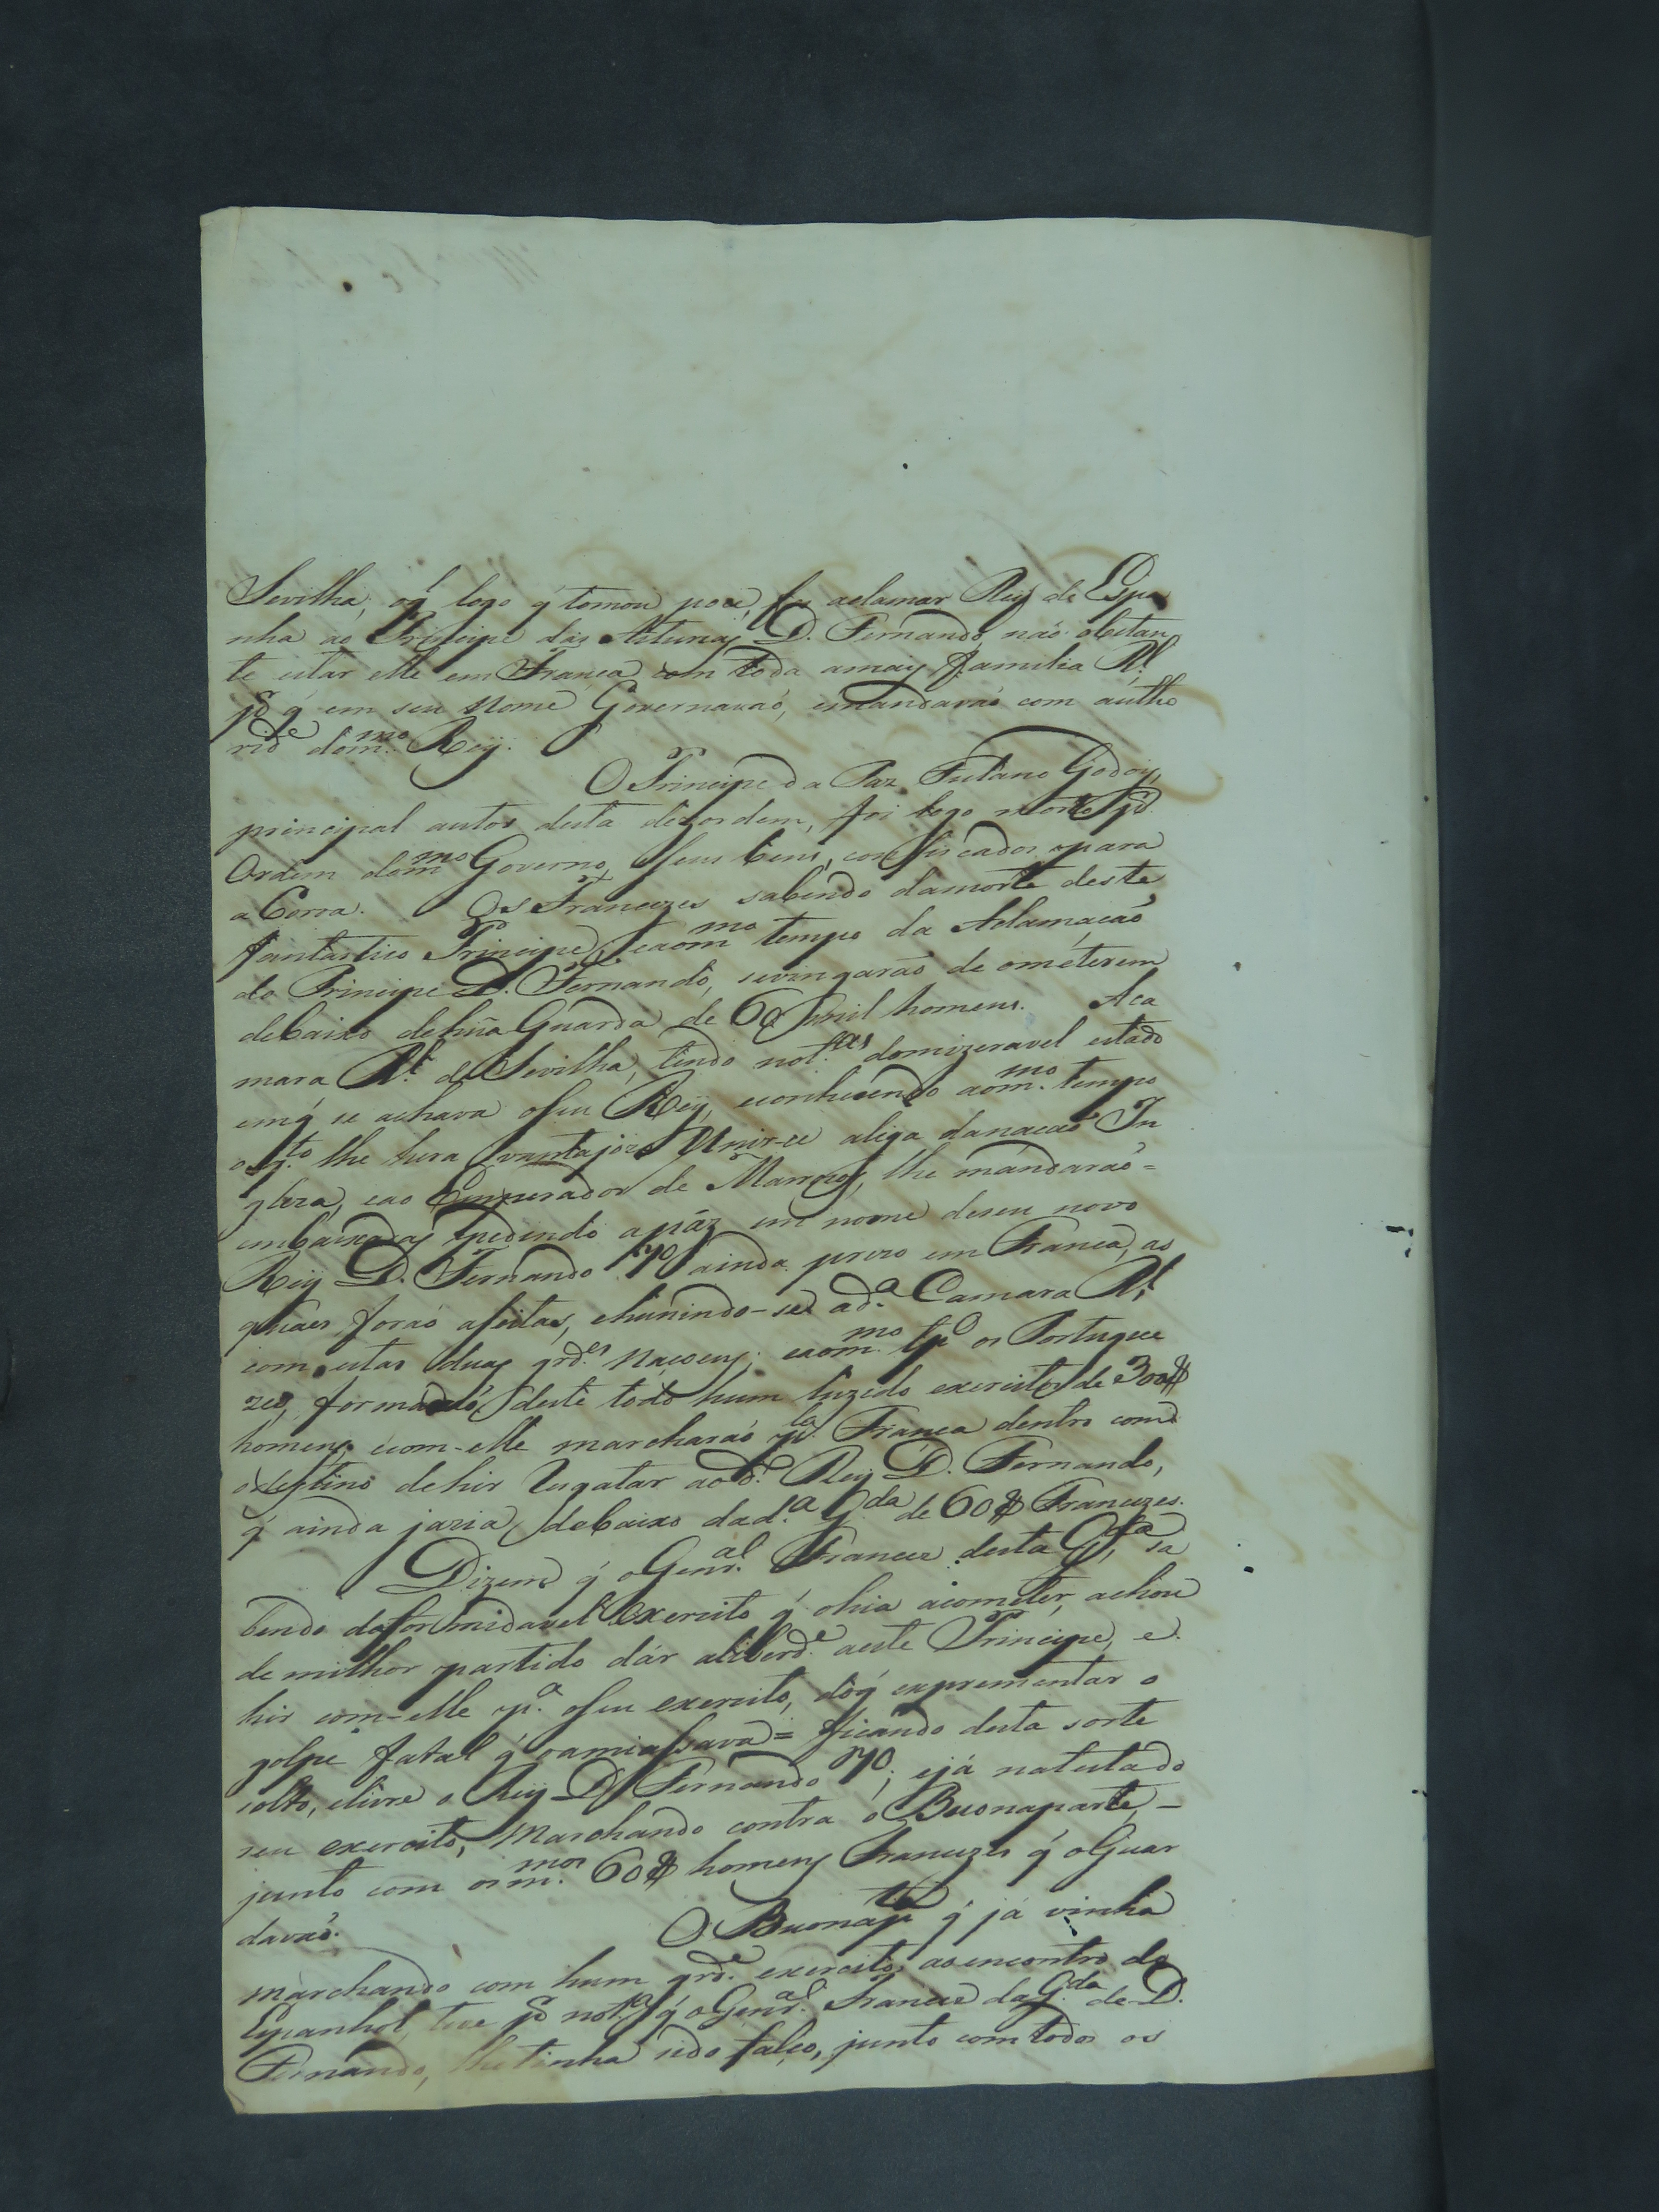 Sevilha, oq̃ logo q̃ tomou poce, fes aclamar Rey de Espa
nha ao Principe das Asturias D. Fernando, não obstan
te estar elle em França com toda amais familia Rl.
pr. q̃ em seu Nome Governavaó, emandavaó com autho
ride. dom.mo Reÿ.
O Principe da Paz Fulano Godoiy,
principal autor desta dezordem, foi logo morto pr.
Ordem dom.mo Governo, eseus bens confiscados para
a Coroa. Os Francezes sabendo damorte deste
fantastico Principe, eaom.mo tempo da Aclamaçaó
do Principe D. Fernando, sevingaraó de ométerem
debaixo dehuã Guarda de 60 mil homens. Aca
mara Rl. de Sevilha, tendo not.as domizeravel estado
emq̃ se achava oseu Reÿ, econhecendo aom.mo tempo
oq.to lhe hera vantajozo Unir-se aliga danaçaó In
gleza, eao Emperador de Marrocos, lhe mandaraó=
embaixadas pedindo apáz em nome deseu novo
Reÿ D. Fernando 7o ainda prezo em França, as
quaes foraó aseitas, ehunindo-se ad.a Camara Rl.
com estas duas grd.es Naçoens; eaom.mo tp.o os Portugue
zes, formaraó deste todo hum luzido exercito de 300$
homens, ecom-elle marcharaó pe.la França dentro com
odestino dehir Resgatar aod.o Reÿ D. Fernando,
q̃ ainda jazia debaixo dad.a G.da de 60$ Francezes.
Dizem q̃ oGenr.al Francez desta G.da, sa
bendo doformidavel exercito q̃ ohia acometer, achou
de milhor partido dár aliberd.e aeste Principe, e
hir com-elle p.a oseu exercito, doq̃ exprementar o
golpe fatal q̃ oamiassava= ficando desta sorte
solto, elivre o Reÿ D. Fernando 7o; ejá natestado
seu exercito, Marchando contra o Buonaparte,-
junto com osm.mos 60$ homens Francezes q̃ oGuar
davaó.
O Buonap.te q̃ já vinha
marchando com hum grd.e exercito, aoencontro do
Espanhol, teve pr. not.a q̃ oGenr.al Francez daG.da de D.
Fernando, lhetinha sido falço, junto comtodos os